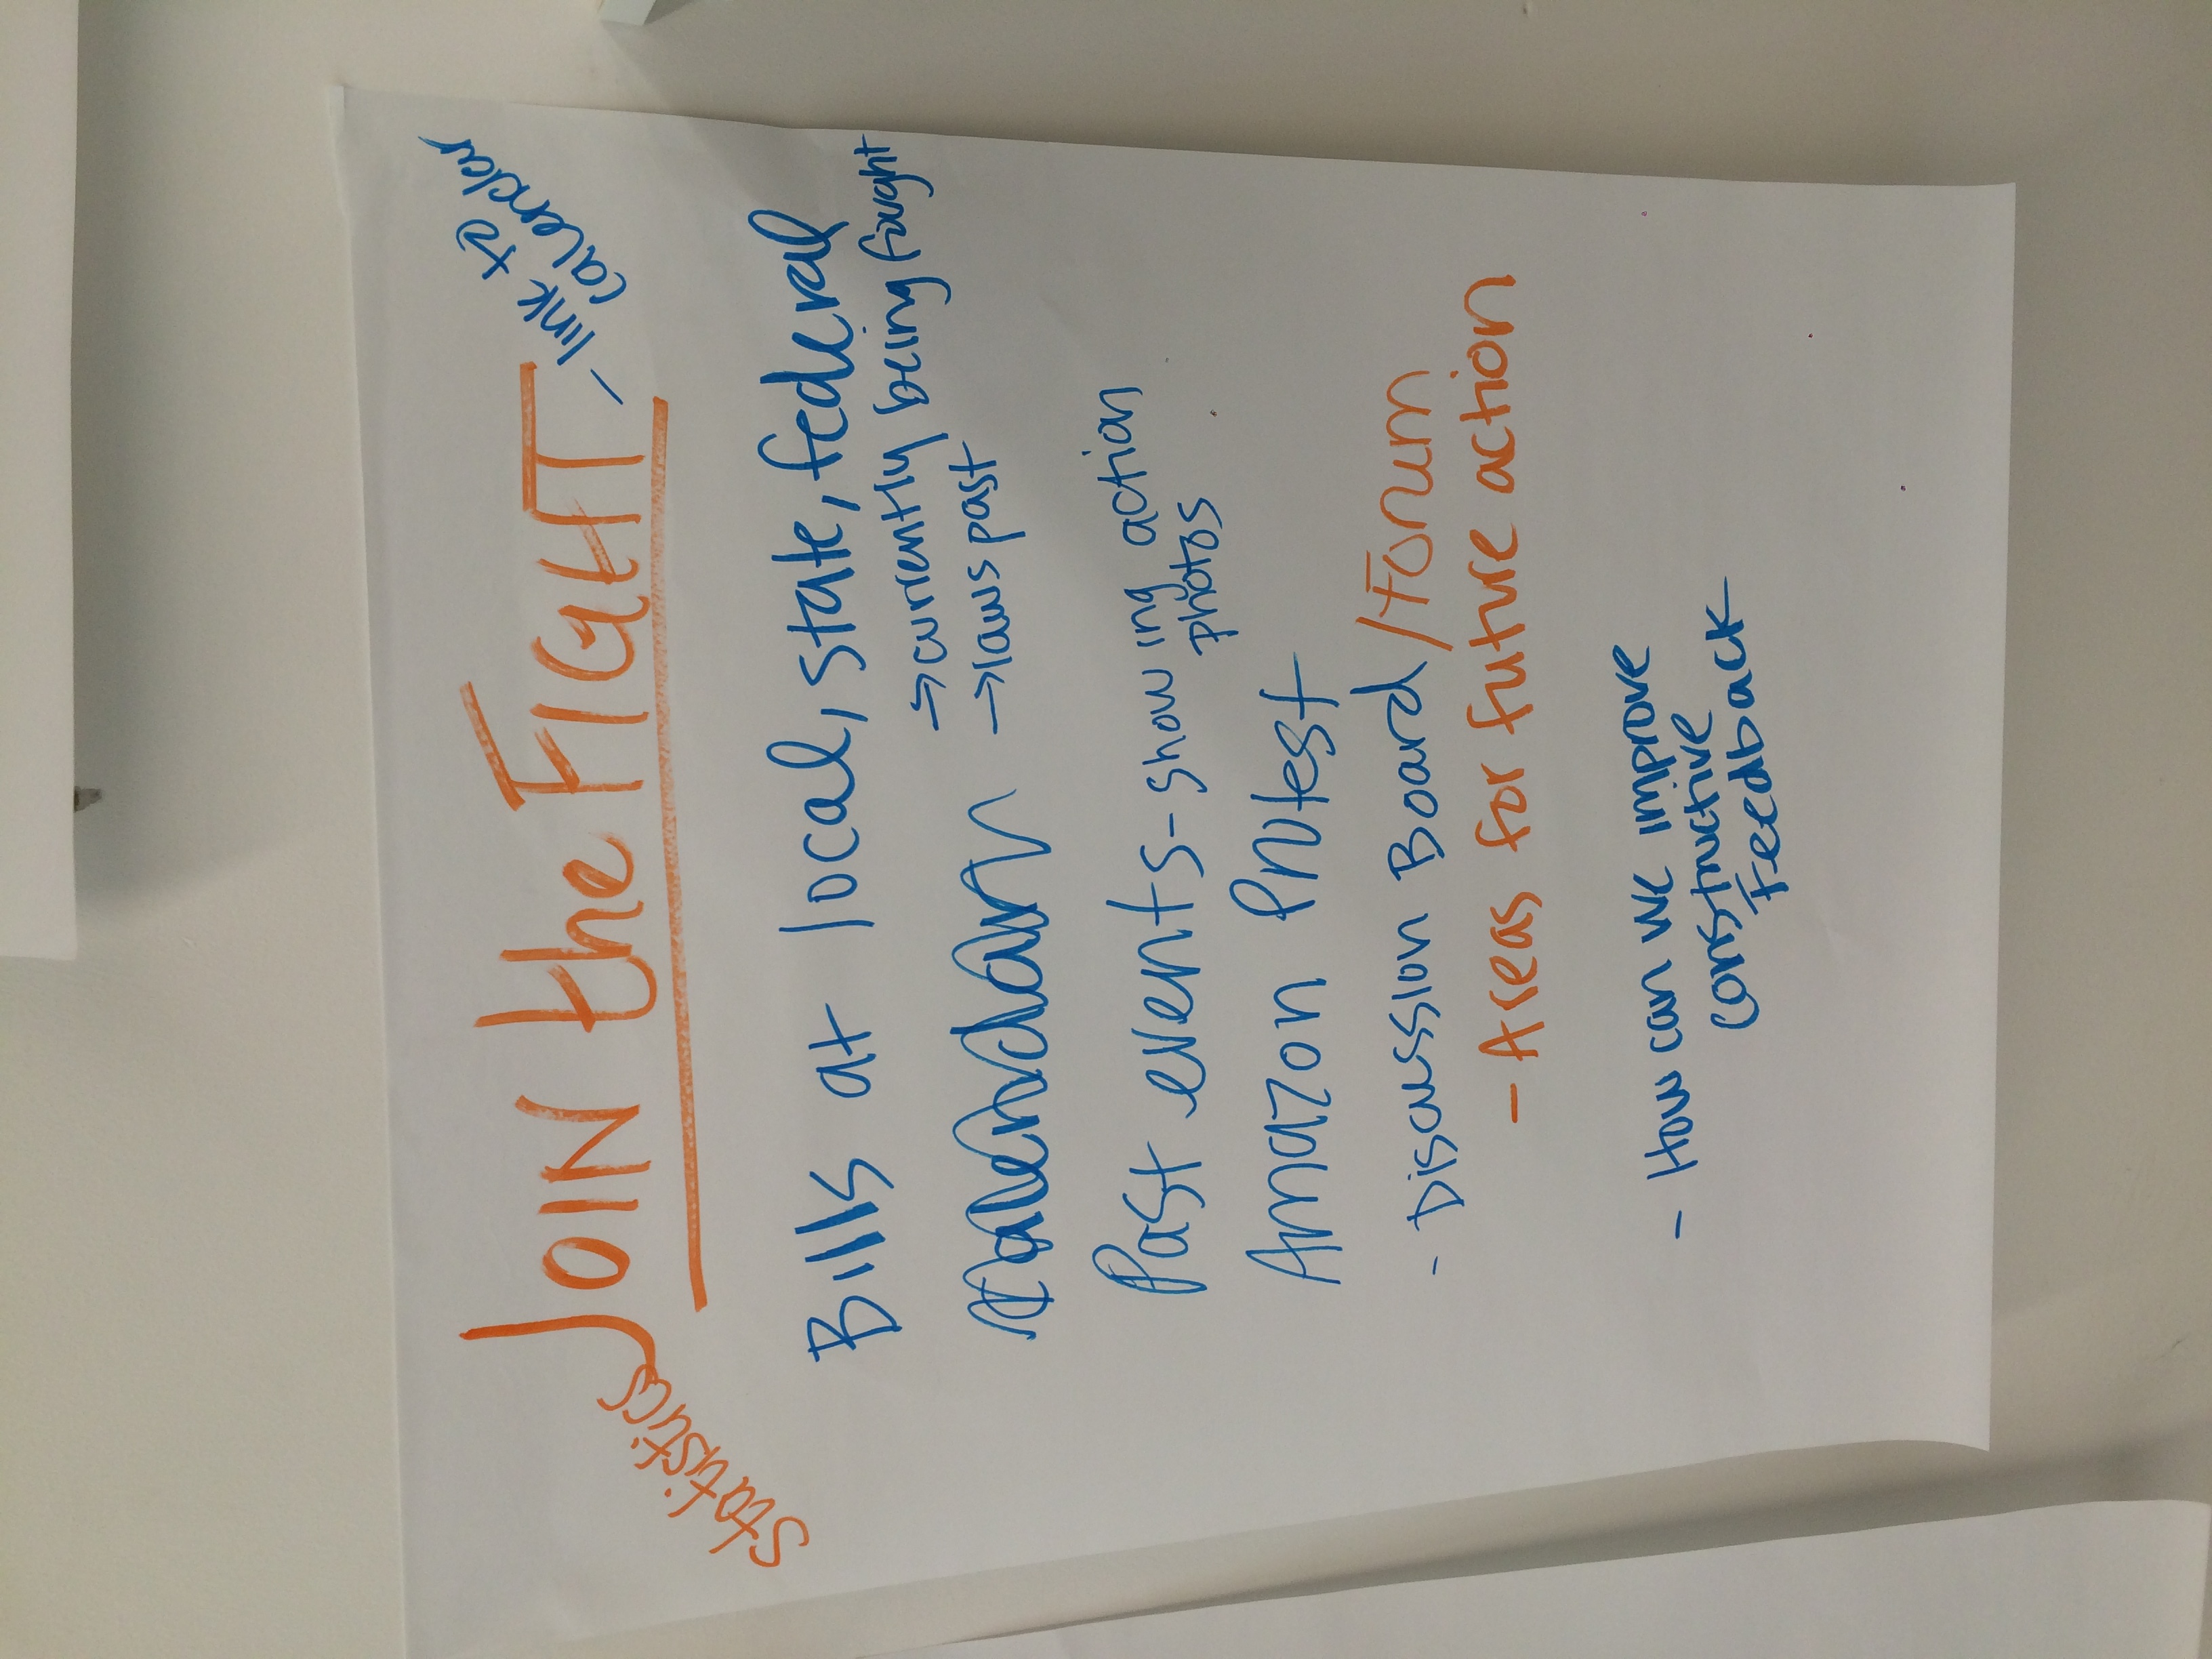 JOIN the FIGHT
– link to
calendar
statistics
Bills at local, state, federal
→ currently being fought
→ laws past
Calendar
Past events - showing action
photos
Amazon Protest
- Discussion Board / Forum
- Areas for future action
- How can we improve
constructive
Feedback